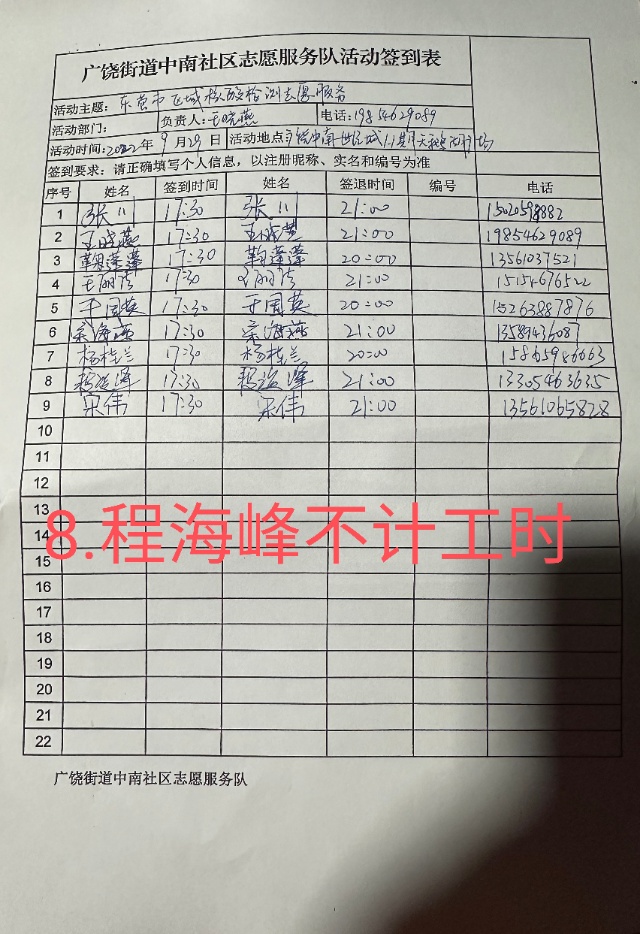 广饶街道中南社区志愿服务队活动签到表
活动主题: 东营市区域核酸检测志愿服务
活动部门: 负责人: 王晓燕 电话: 19854629089
活动时间: 2022年9月29日 活动地点
签到要求: 请正确填写个人信息，以注册昵称、实名和编号为准
序号 姓名 签到时间 姓名 签退时间 编号 电话
1 张川 17:30 张川 21:00
2 王晓燕 17:30 王晓燕 21:00 19854629089
3 鞠蓬蓬 17:30 鞠蓬蓬 20:00 13561037521
4 17:30 21:00 15154676522
5 17:30 20:00 15263887876
6 宗海燕 17:30 宗海燕 21:00 13589436087
7 杨桂兰 17:30 杨桂兰 20:00
8 程海峰 17:30 程海峰 21:00 13305463635
9 宋伟 17:30 宋伟 21:00 13561065828
10
11
12
13
8.程海峰不计工时
14
15
16
17
18
19
20
21
22
广饶街道中南社区志愿服务队